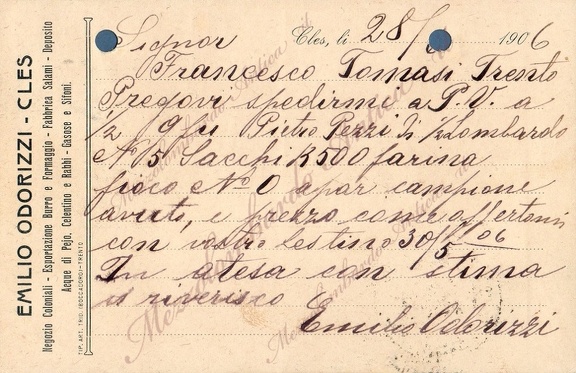 EMILIO ODORIZZI - CLES
Negozio Coloniali - Esportazione Burro e Formaggio - Fabbrica Salami - Deposito
Acque di Pejo, Celentino e Rabbi - Gasose e Sifoni.
TIP. ART. TRID. (BOCCADORO)-TRENTO
Cles, li 28/ 1906
Signor
Francesco Tomasi Trento
Pregovi spedirmi a P. V. a
1/2 Pietro Pezzi Lombardo
N 5 Sacchi K 500 farina
fioco No 0 a par campione
avuto, e prezzo come offertomi
con vostro Lestino 30/5 06
In atesa con stima
vi riverisco
Emilio Odorizzi